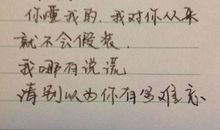 你懂我的，我对你从来
就不会假装，
我哪有说谎
请别以为你有多难忘